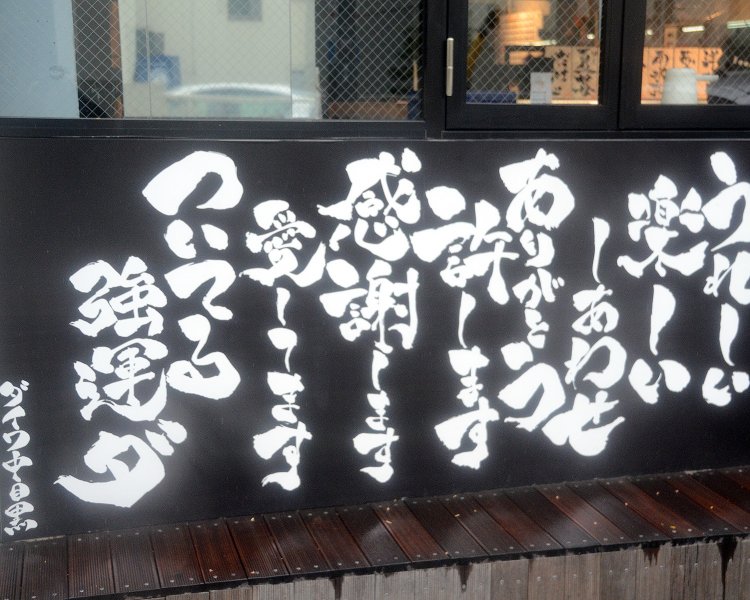 うれしい
楽しい
しあわせ
ありがとう
許します
感謝します
愛してます
ついてる
強運ダ
ダイワ中目黒